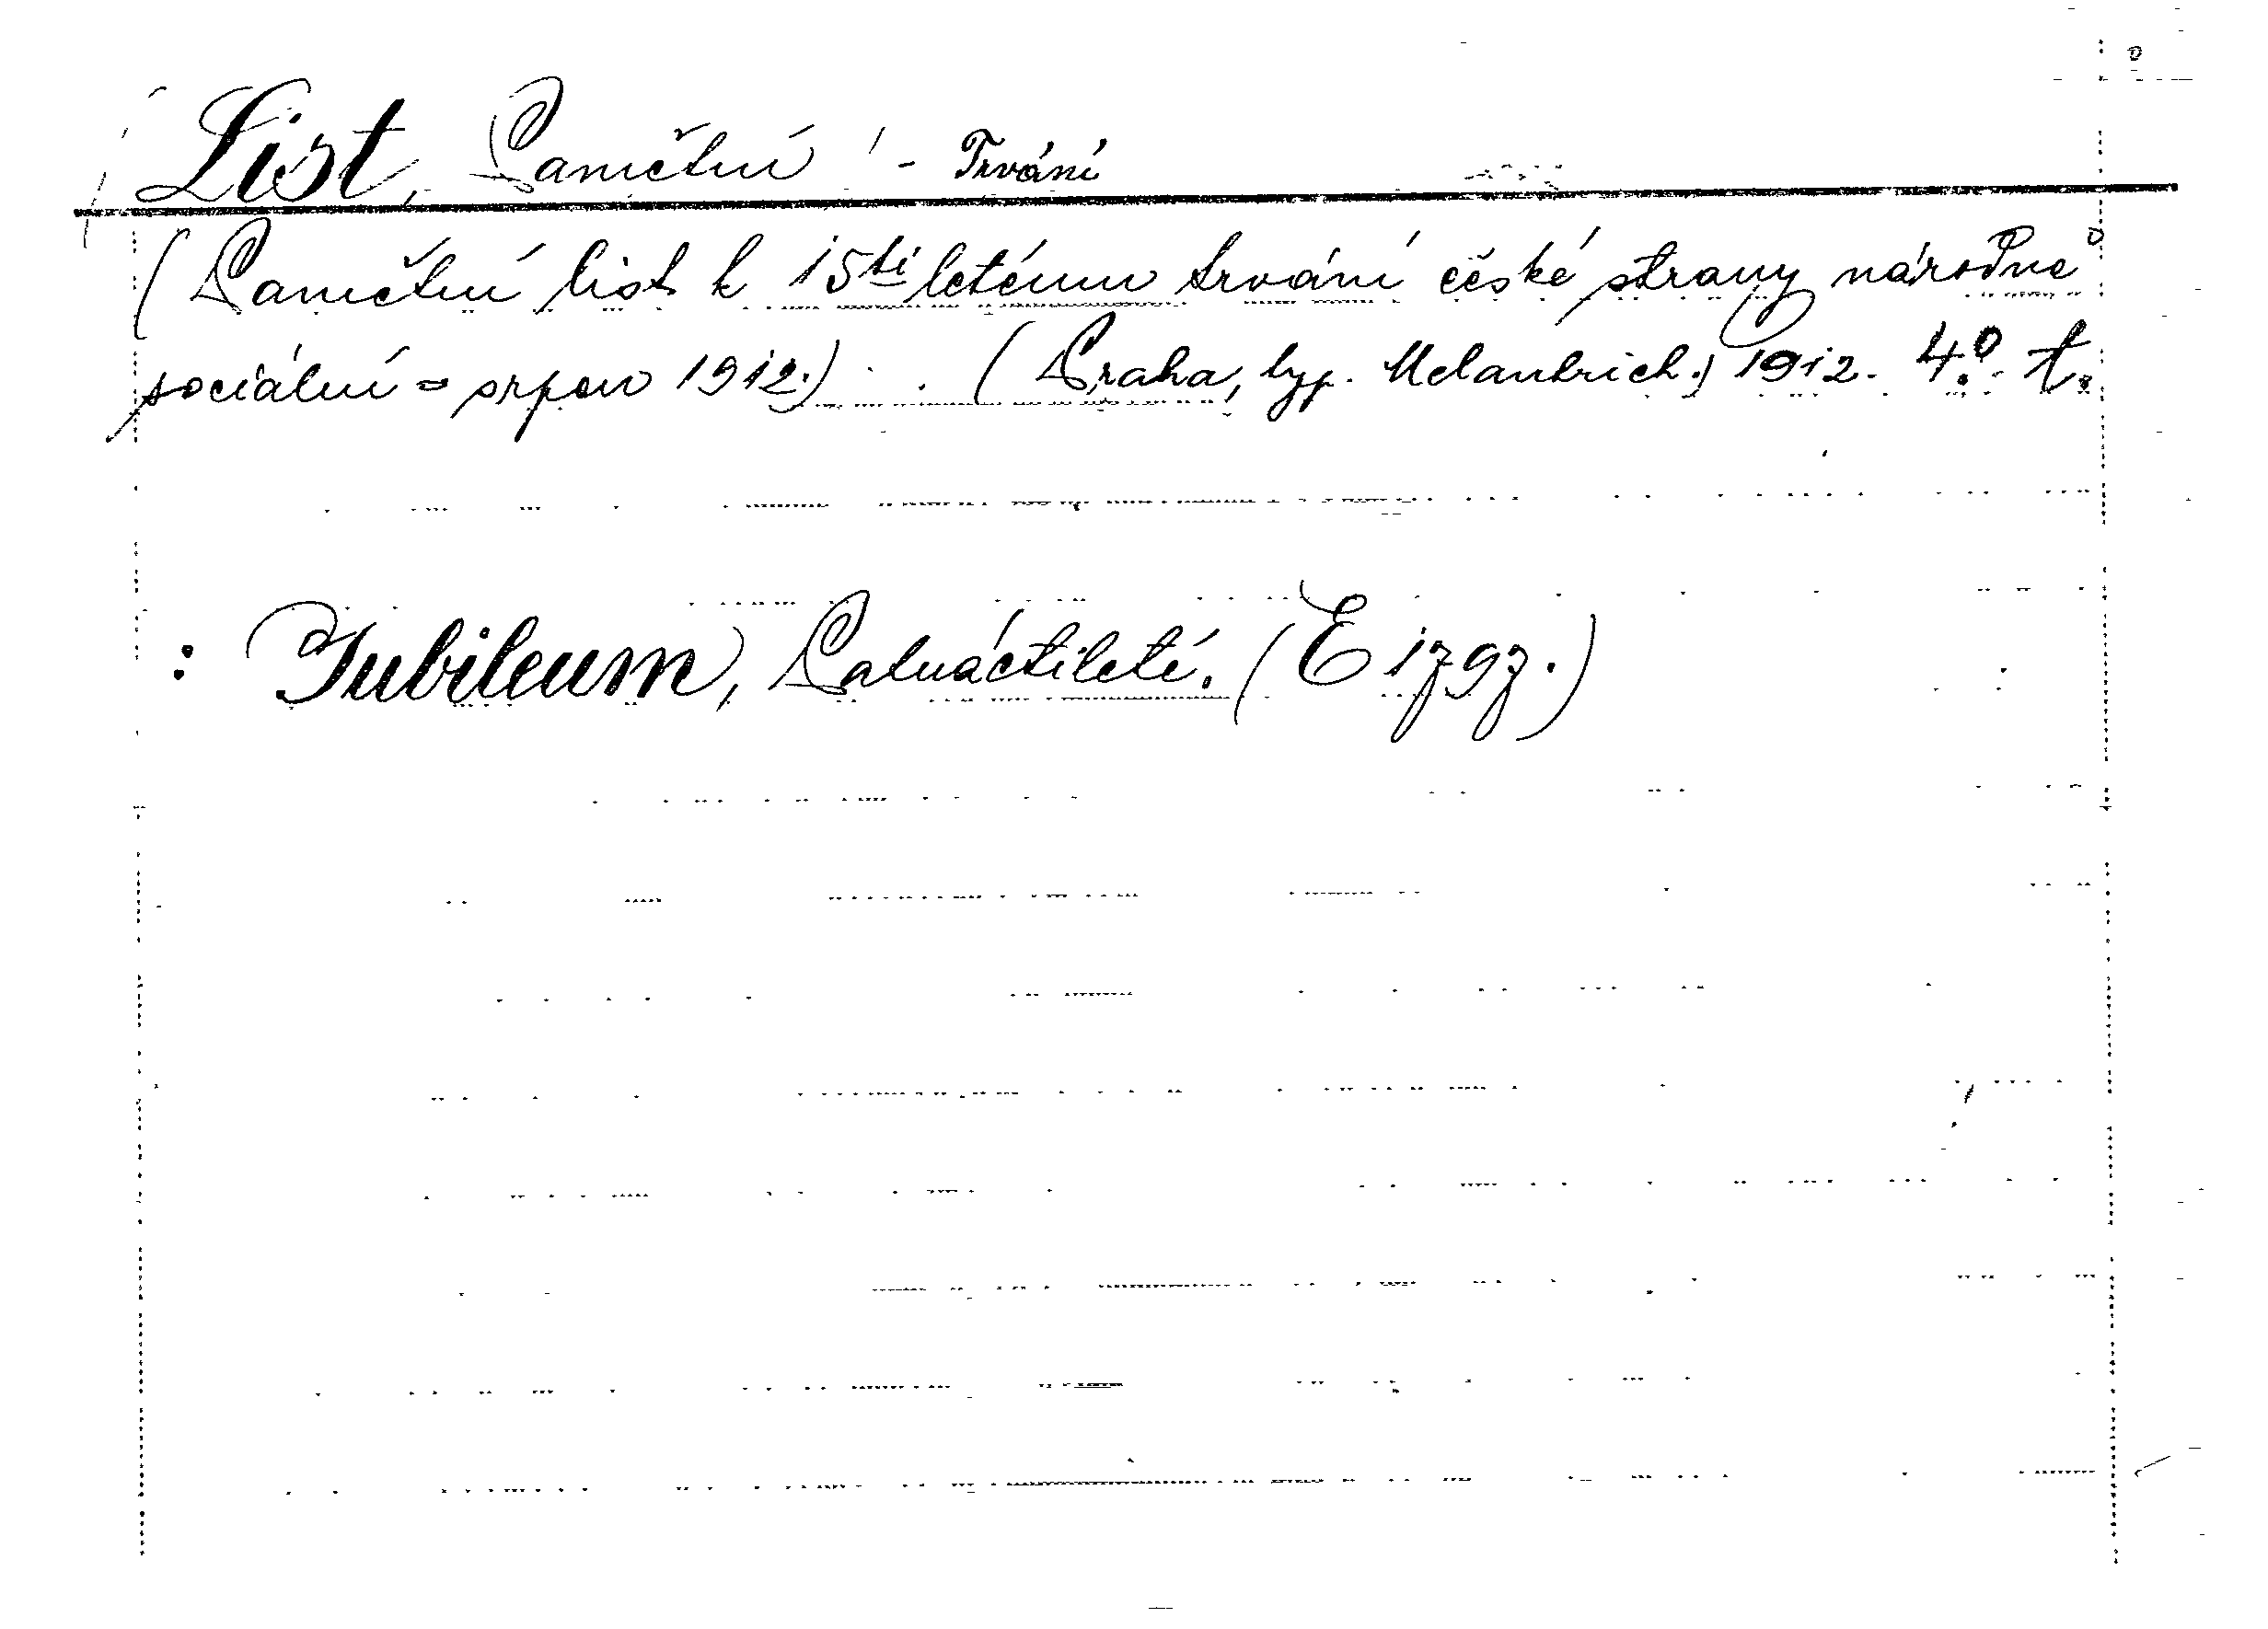 List, Pamětní - Trvání
(Pamětní list k 15ti letému trvání české strany národně
sociální = srpen 1912.) (Praha, typ. Melantrich.) 1912. 4.º t.
: Jubileum, Patnáctileté. (E 1797.)